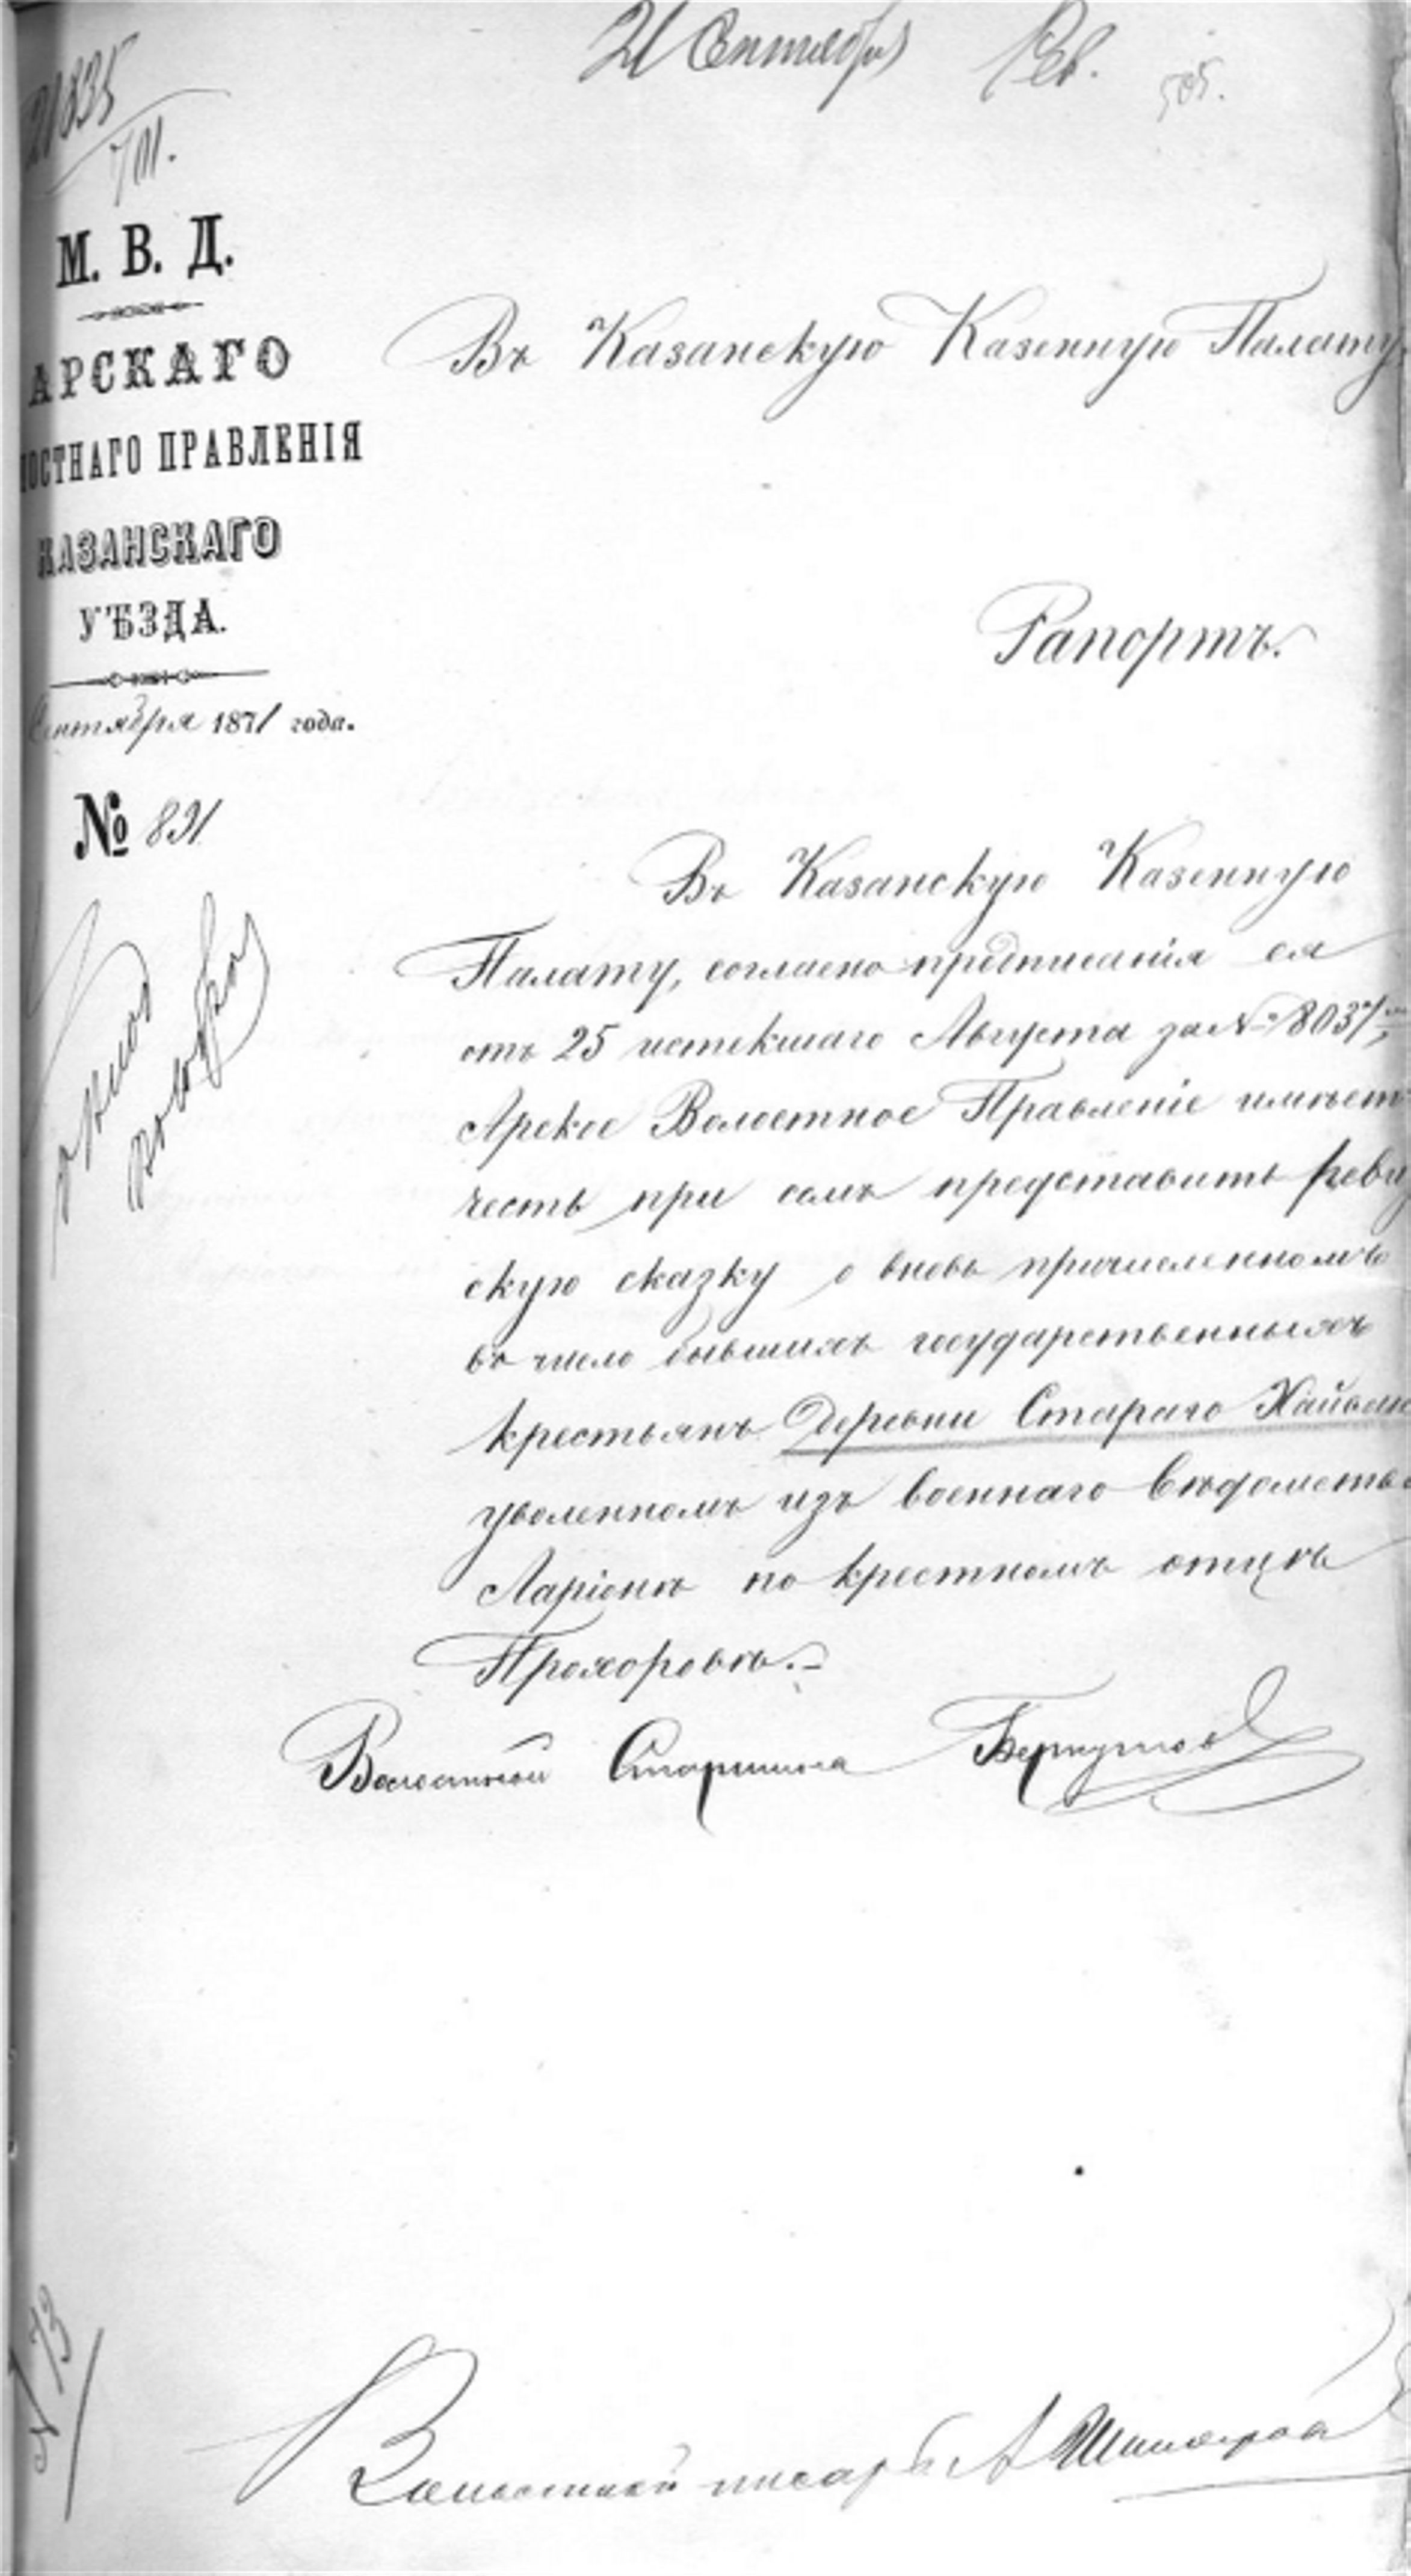 21 Сентября Рев.
505.
21835
М. В. Д.
АРСКАГО
ОСТНАГО ПРАВЛЕНІЯ
КАЗАНСКАГО
УѢЗДА.
Сентября 1871 года.
№ 891
Въ Казанскую Казенную Палату.
Рапортъ.
Въ Казанскую Казенную
Палату, согласно предписанія ея
отъ 25 истекшаго Августа за № 8037,
Арское Волостное Правленіе имѣетъ
честь при семъ представить реви
скую сказку о вновь причисленномъ
въ число бывшихъ государственныхъ
крестьянъ Деревни Стараго
уволенномъ изъ военнаго вѣдомства
Ларіонѣ по крестномъ отцѣ
Прохоровѣ.
Волостной Старшина
№ 73
Волостной писарь А